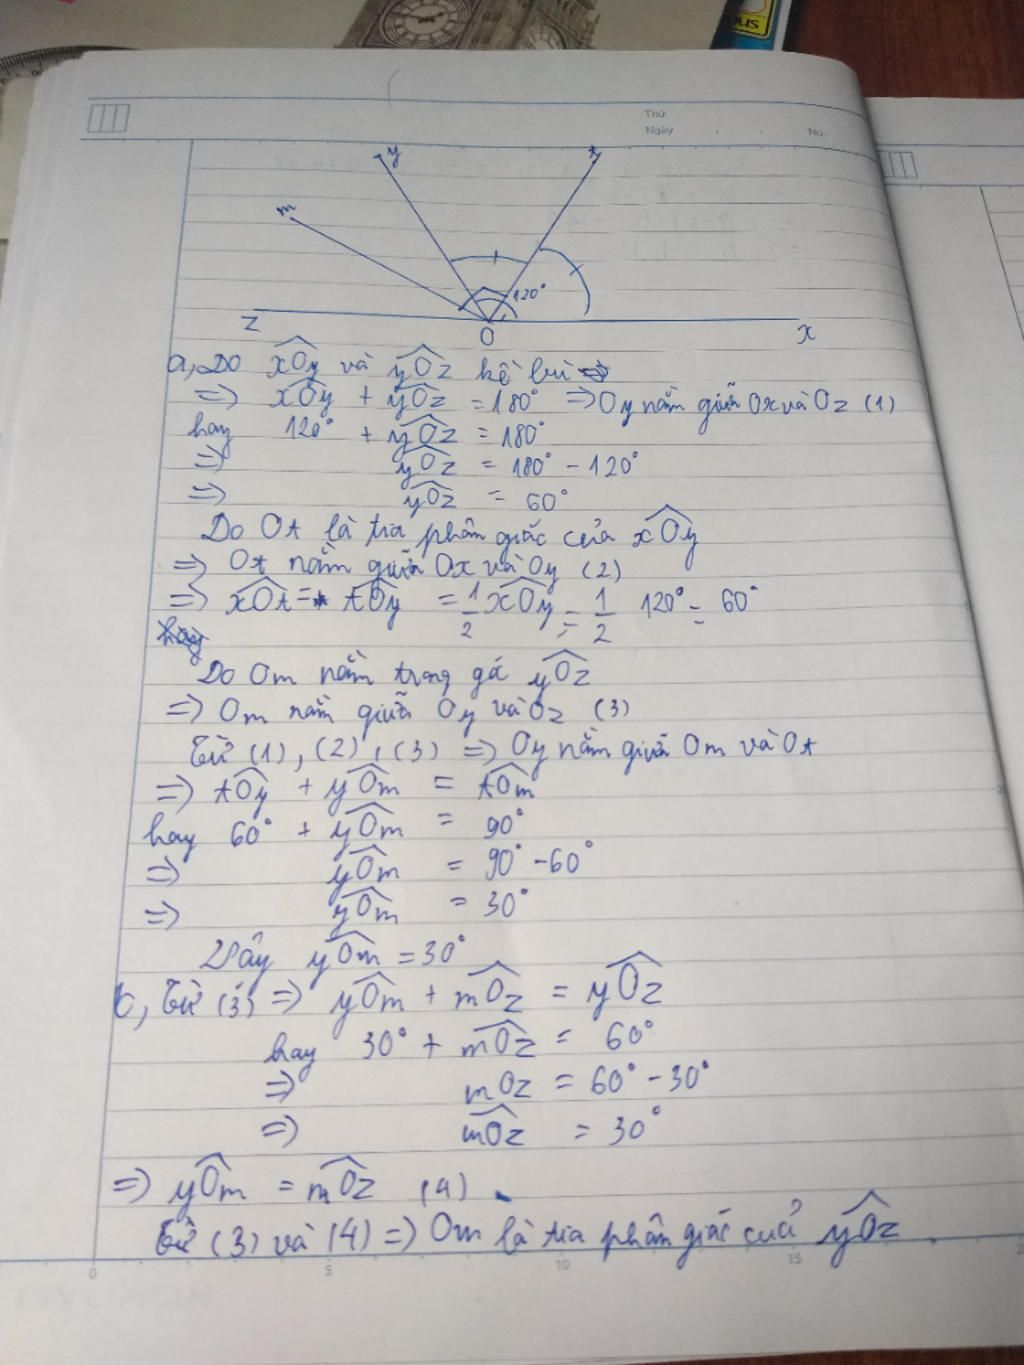 Thứ
Ngày . . No.
y
t
m
120°
z
O
x
a, Do xOy và yOz kề bù
=> xOy + yOz = 180° => Oy nằm giữa Ox và Oz (1)
hay 120° + yOz = 180°
=> yOz = 180° - 120°
=> yOz = 60°
Do Ot là tia phân giác của xOy
=> Ot nằm giữa Ox và Oy (2)
=> xOt = tOy = 1/2 xOy = 1/2 120° = 60°
Do Om nằm trong gó yOz
=> Om nằm giữa Oy và Oz (3)
Từ (1), (2), (3) => Oy nằm giữa Om và Ot
=> tOy + yOm = tOm
hay 60° + yOm = 90°
=> yOm = 90° - 60°
=> yOm = 30°
Vậy yOm = 30°
b, Từ (3) => yOm + mOz = yOz
hay 30° + mOz = 60°
=> mOz = 60° - 30°
=> mOz = 30°
=> yOm = mOz (4)
Từ (3) và (4) => Om là tia phân giác cuả yOz
0 5 10 15